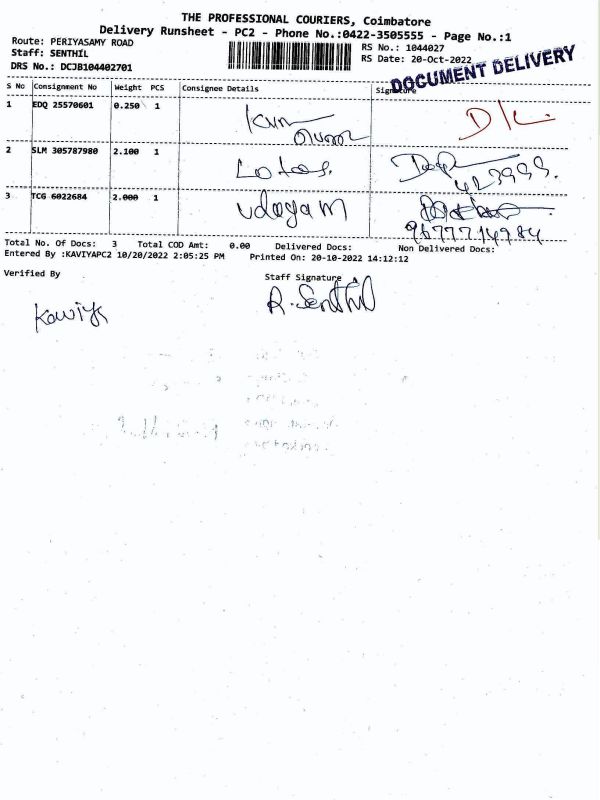 THE PROFESSIONAL COURIERS, Coimbatore
Delivery Runsheet - PC2 - Phone No.:0422-3505555 - Page No.:1
Route: PERIYASAMY ROAD
RS No.: 1044027
Staff: SENTHIL
RS Date: 20-Oct-2022
DRS No.: DCJB104402701
DOCUMENT DELIVERY
S No Consignment No Weight PCS Consignee Details Signature
1 EDQ 25570601 0.250 1
2 SLM 305787980 2.100 1 Lotos.
3 TCG 6022684 2.000 1 Udayam
Total No. Of Docs: 3 Total COD Amt: 0.00 Delivered Docs: Non Delivered Docs:
Entered By :KAVIYAPC2 10/20/2022 2:05:25 PM Printed On: 20-10-2022 14:12:12
Verified By Staff Signature
Kaviya R. Senthil